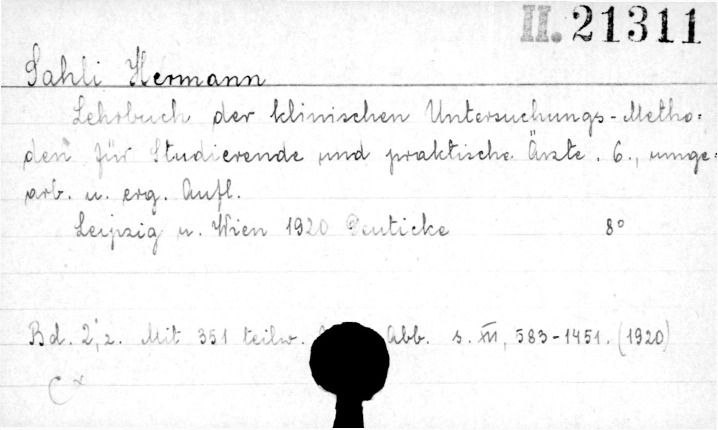 II. 21311
Sahli Hermann
Lehrbuch der klinischen Untersuchungs-Metho-
den für Studierende und praktische Ärzte. 6., umge-
arb. u. erg. Aufl.
Leipzig u. Wien 1920 Deuticke 8°
Bd. 2,2. Mit 351 teilw. Abb. s. XII, 583-1451. (1920)